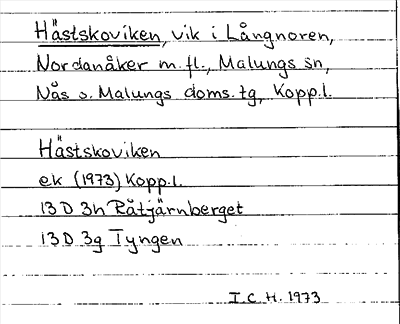 Hästskoviken, vik i Långnoren,
Nordanåker m.fl., Malungs sn,
Nås o. Malungs doms. tg, Kopp.l.
Hästskoviken
ek (1973) Kopp.l.
13 D 3h Råtjärnberget
13 D 3g Tyngen
I.C.H. 1973